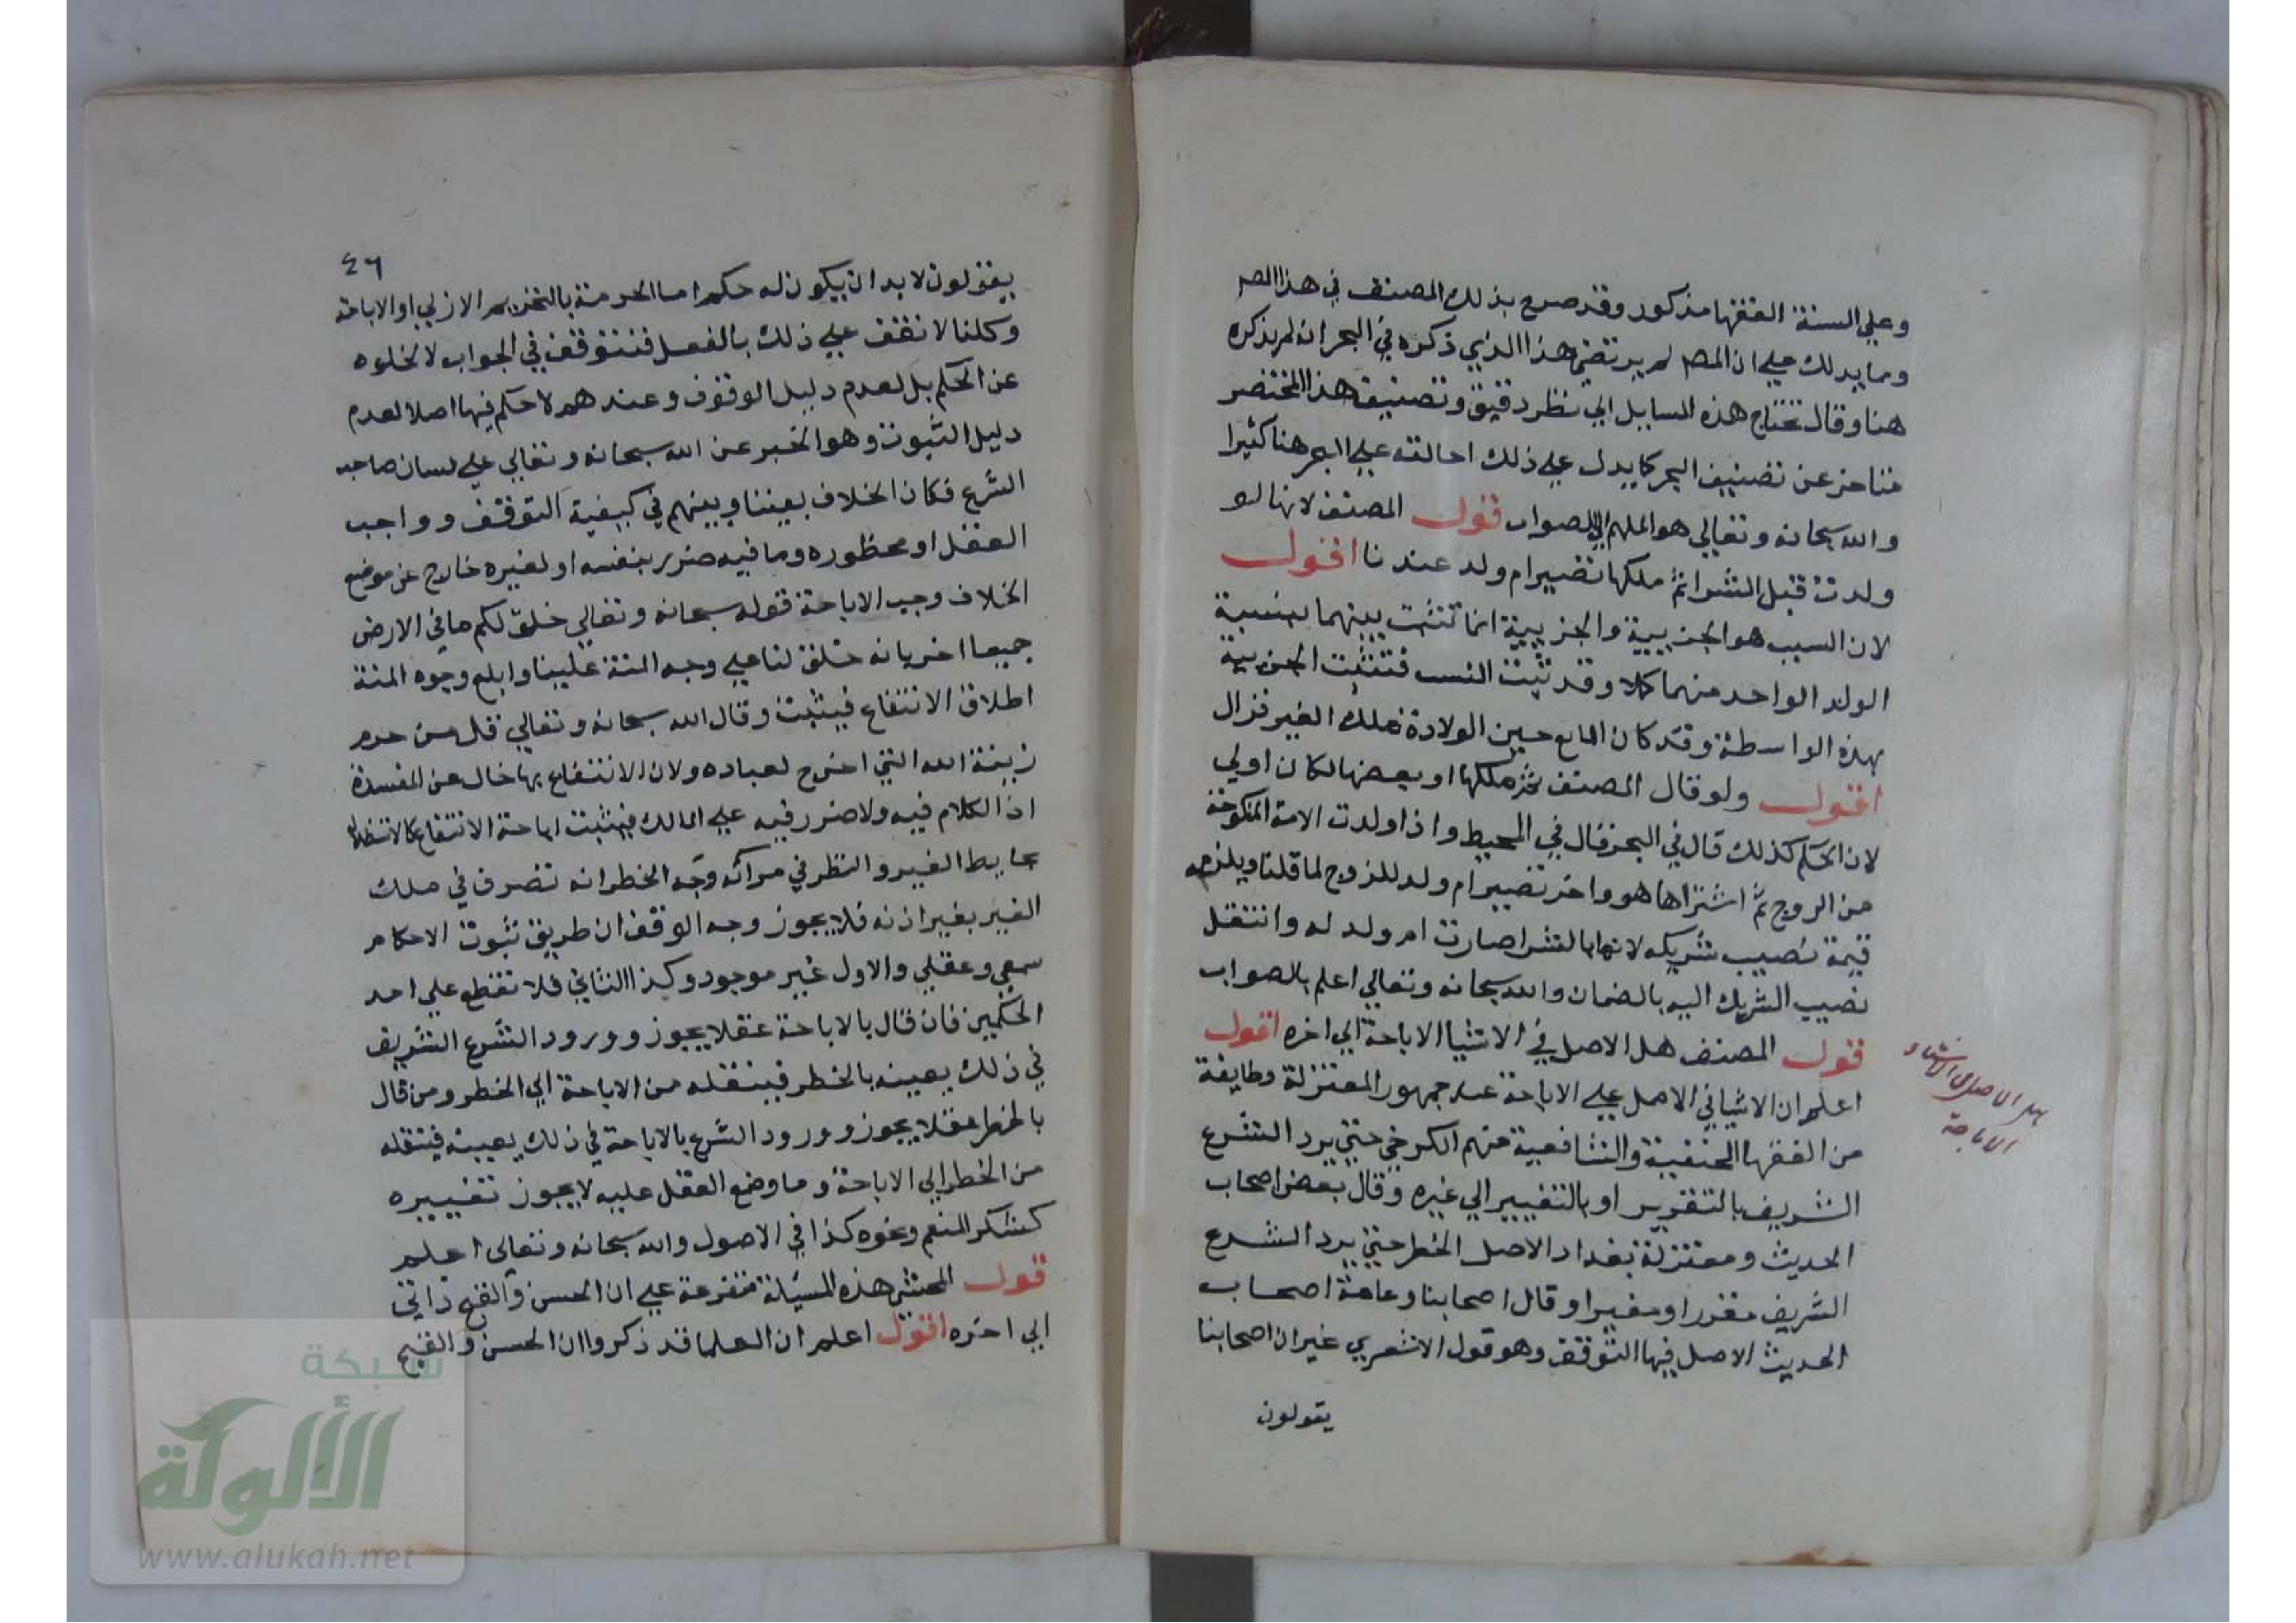 وعلي السنة الفقها مذكور وقد صرح بذلك المصنف في هذا المص
ومما يدلك علي ان المص لم يرتضي هذا الذي ذكره في البحر انه لم يذكره
هنا وقال تحتاج هذه المسايل الي نظر دقيق وتصنيف هذا المختصر
متاخر عن تصنيف البحر كما يدل علي ذلك احالته علي البحر هنا كثيرا
والله سبحانه وتعالي هو الملهم للصواب قول المصنف لانها لو
ولدت قبل الشرا ثم ملكها تصير ام ولد عندنا اقول
لان السبب هو الجزييية والجزييية انما تثبت بينهما بنسبة
الولد الواحد منهما كلا وقد ثبت النسب فتثبت الجزيية
بهذه الواسطة وقد كان المانع حين الولادة ملك الغير فزال
اقول ولو قال المصنف ثم ملكها او بعضها لكان اولي
لان الحكم كذلك قال في البحر قال في المحيط واذا ولدت الامة المنكوحة
من الزوج ثم اشتراها هو واخر تصير ام ولد للزوج لما قلنا ويلزمه
قيمة نصيب شريكه لانها بالشرا صارت ام ولد له وانتقل
نصيب الشريك اليه بالضمان والله سبحانه وتعالي اعلم بالصواب
قول المصنف هل الاصل في الاشيا الاباحة الي اخره اقول
اعلم ان الاشيا في الاصل علي الاباحة عند جمهور المعتزلة وطايفة
من الفقها الحنفية والشافعية منهم الكرخي حتي يرد الشرع
الشريف بالتقرير او بالتغيير الي غيره وقال بعض اصحاب
الحديث ومعتزلة بغداد الاصل الخطر حتي يرد الشرع
الشريف مقررا ومغيرا وقال اصحابنا وعامة اصحاب
الحديث الاصل فيها التوقف وهو قول الاشعري غير ان اصحابنا
يقولون
هل الاصل في الاشياء
الاباحة
٤٦
يقولون لا بد ان يكون له حكم اما الحرمة بالتحريم الازلي او الاباحة
وكلنا لا نقف علي ذلك بالفعل فنتوقف في الجواب لا لخلوه
عن الحكم بل لعدم دليل الوقوف وعندهم لا حكم فيها اصلا لعدم
دليل الثبوت وهو الخبر عن الله سبحانه وتعالي علي لسان صاحب
الشرع فكان الخلاف بيننا وبينهم في كيفية التوقف وواجب
العقل او محظوره وما فيه ضرر بنفسه او لغيره خارج عن موضع
الخلاف وجه الاباحة قوله سبحانه وتعالي خلق لكم ما في الارض
جميعا اخر بانه خلق لنا علي وجه المنة علينا وابلغ وجوه المنة
اطلاق الانتفاع فيثبت وقال الله سبحانه وتعالي قل من حرم
زينة الله التي اخرج لعباده ولان الانتفاع بها خال عن المفسدة
اذ الكلام فيه ولا ضرر فيه علي المالك فيثبت اباحة الانتفاع كالاستظلال
بحايط الغير والنظر في مرآته وجه الخطر انه تصرف في ملك
الغير بغير اذنه فلا يجوز وجه الوقف ان طريق ثبوت الاحكام
سمعي وعقلي والاول غير موجود وكذا الثاني فلا نقطع علي احد
الحكمين فان قال بالاباحة عقلا يجوز وورود الشرع الشريف
في ذلك بعينه بالخطر فينقله من الاباحة الي الخطر ومن قال
بالخطر عقلا يجوز وورود الشرع بالاباحة في ذلك بعينه فينقله
من الخطر الي الاباحة وما وضع العقل عليه لا يجوز تغييره
كشكر المنعم ونحوه كذا في الاصول والله سبحانه وتعالي اعلم
قول المحشي هذه المسئلة متفرعة علي ان الحسن والقبح ذاتي
الي اخره اقول اعلم ان العلما قد ذكروا ان الحسن والقبح
شبكة
الألوكة
www.alukah.net